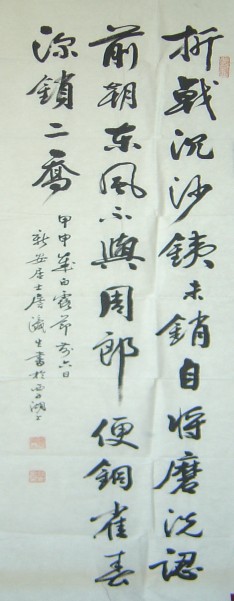 折戟沉沙銕未銷自将磨洗認
前朝東風不與周郎便銅雀春
深鎖二喬
甲申年白露節前六日
新安居士生書於西湖上